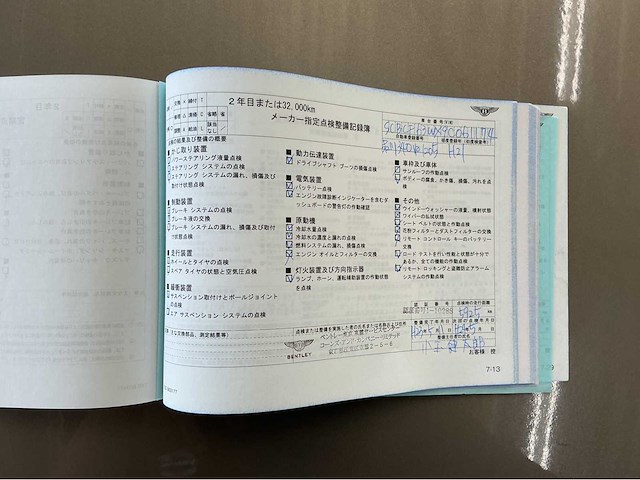 2年目または32,000km
メーカー指定点検整備記録簿
車台番号(下8)
自動車登録番号
H21
点検の結果及び整備の概要
■ かじ取り装置
パワーステアリング液量点検
ステアリング システムの点検
ステアリング システムの漏れ、損傷及び
取付け状態点検
■ 制動装置
ブレーキ システムの点検
ブレーキ液の交換
ブレーキ システムの漏れ、損傷及び取付
け状態点検
■ 走行装置
ホイールとタイヤの点検
スペア タイヤの状態と空気圧点検
■ 緩衝装置
サスペンション取付けとボールジョイント
の点検
エア サスペンション システムの点検
■ 動力伝達装置
ドライブシャフト ブーツの損傷点検
■ 電気装置
バッテリー点検
エンジン故障診断インジケーターを含むダ
ッシュボードの警告灯の作動確認
■ 原動機
冷却水量点検
冷却水の濃度と漏れの点検
燃料システムの漏れ、損傷点検
エンジン オイルとフィルターの交換
■ 灯火装置及び方向指示器
ランプ、ホーン、運転補助装置の作動状態
を点検
■ 車枠及び車体
サンルーフの作動点検
ボディーの腐食、かき傷、損傷、汚れを点
検
■ その他
ウインドーウォッシャーの液量、噴射状態
ワイパーの払拭状態
シート ベルトの状態と作動点検
花粉フィルターとダストフィルターの交換
リモート コントロール キーのバッテリー
交換
ロード テストを行い性能と状態が十分で
あるか、全ての機能の作動点検
リモート ロッキングと盗難防止アラーム
システムの作動点検
認証番号
点検時の走行距離
km
(主な交換部品、測定結果等)
点検または整備を実施した者の氏名または名称及び住所
BENTLEY
ベントレー東京 芝営業サービスセンター
コーンズ・アンド・カンパニー・リミテッド
整備主任者の氏名
お客様 控
7-13